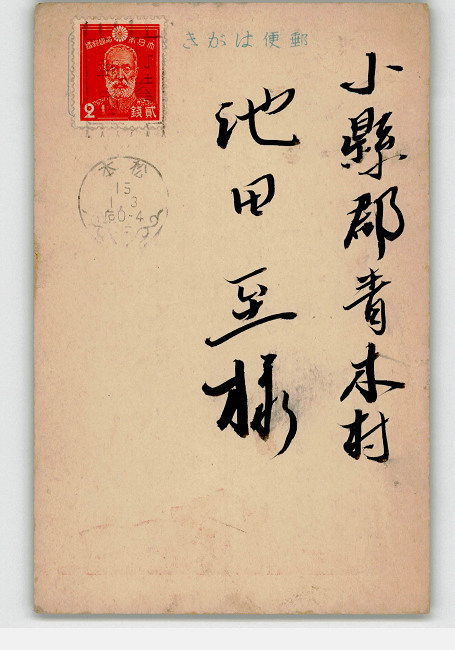 郵便はがき
小縣郡青木村
池田至様
大日本帝國郵便
2
貳錢
15
1.3
0-4